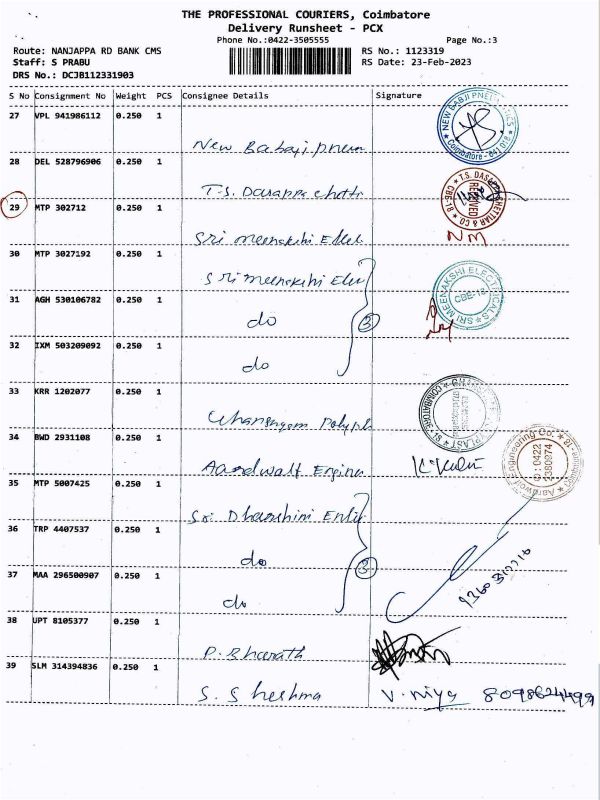 THE PROFESSIONAL COURIERS, Coimbatore
Delivery Runsheet - PCX
Phone No.:0422-3505555 Page No.:3
Route: NANJAPPA RD BANK CMS RS No.: 1123319
Staff: S PRABU RS Date: 23-Feb-2023
DRS No.: DCJB112331903
S No Consignment No Weight PCS Consignee Details Signature
27 VPL 941986112 0.250 1
New Babaji pneum
NEW BABJI PNEUMATICS
Coimbatore - 641 018
28 DEL 528796906 0.250 1
T.S. Dasappa chetti
T.S. DASAPPA CHETTIAR & CO
RECEIVED
CBE-18
29 MTP 302712 0.250 1
Sri meenakshi Elect
NM
30 MTP 3027192 0.250 1
Sri meenakshi Elec
SRI MEENAKSHI ELECTRICALS
CBE-18
31 AGH 530106782 0.250 1
do
5
32 IXM 503209092 0.250 1
do
33 KRR 1202077 0.250 1
COIMBATORE-18
34 BWD 2931108 0.250 1
Aardwolf Engine
Aardwolf Engineering Co.
O : 0422
2380974
35 MTP 5007425 0.250 1
Sri Dharshini Ent
36 TRP 4407537 0.250 1
do
3
37 MAA 296500907 0.250 1
do
38 UPT 8105377 0.250 1
P. Bharath
39 SLM 314394836 0.250 1
S. Sheshma V. niya